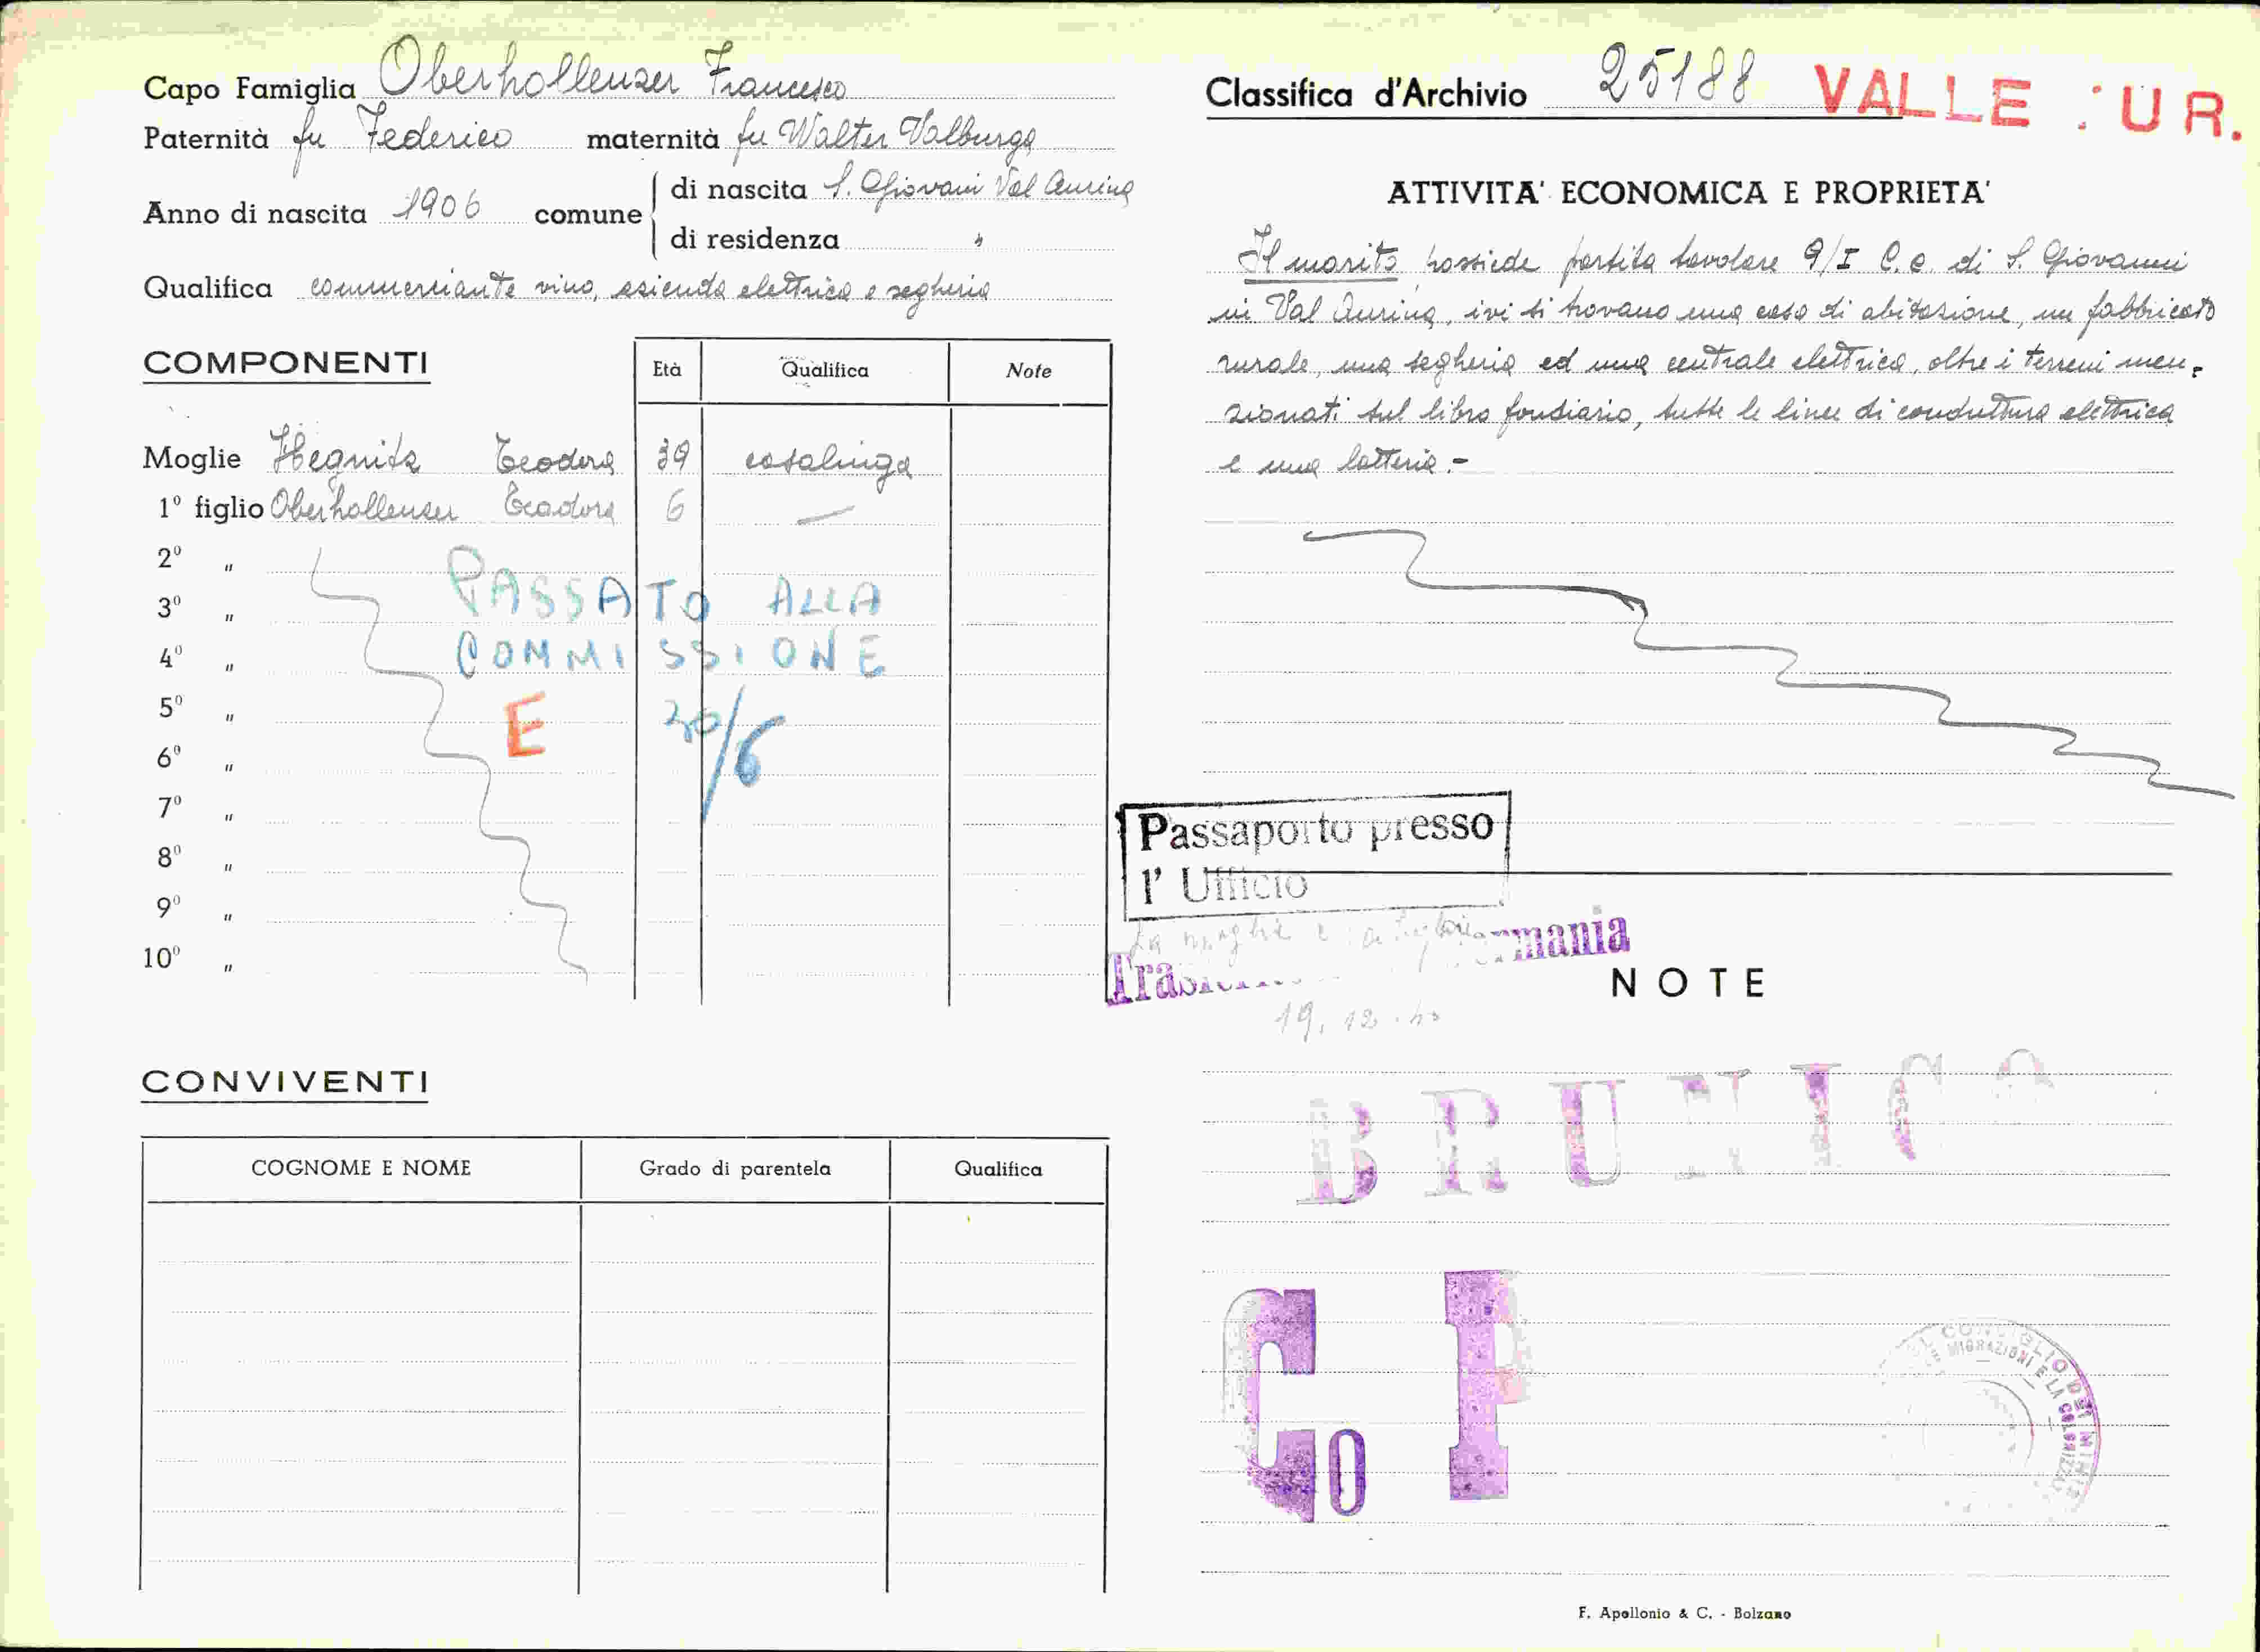 Capo Famiglia Oberhollenzer Francesco
Paternità fu Federico maternità fu Walter Valburga
Anno di nascita 1906 comune di nascita S. Giovani Val Aurina
di residenza "
Qualifica commerciante vino, azienda elettrica e segheria
COMPONENTI
Età Qualifica Note
Moglie Hegnitz Teodora 39 casalinga
1º figlio Oberhollenzer Teodora 6 —
2º "
3º "
4º "
5º "
6º "
7º "
8º "
9º "
10º "
PASSATO ALLA
COMMISSIONE
E 30/6
CONVIVENTI
COGNOME E NOME Grado di parentela Qualifica
Classifica d'Archivio 25188 VALLE UR.
ATTIVITA' ECONOMICA E PROPRIETA'
Il marito possiede partita tavolare 9/I C.c. di S. Giovanni
in Val Aurina, ivi si trovano una casa di abitazione, un fabbricato
rurale, una segheria ed una centrale elettrica, oltre i terreni men-
zionati sul libro fondiario, tutte le linee di conduttura elettrica
e una latteria.-
Passaporto presso
l' Ufficio
La moglie e
19.12.40
NOTE
BRUNICO
Co F
CONSIGLIO DEI MINIS
MIGRAZIONI E LA COLONIZZA
F. Apollonio & C. - Bolzano